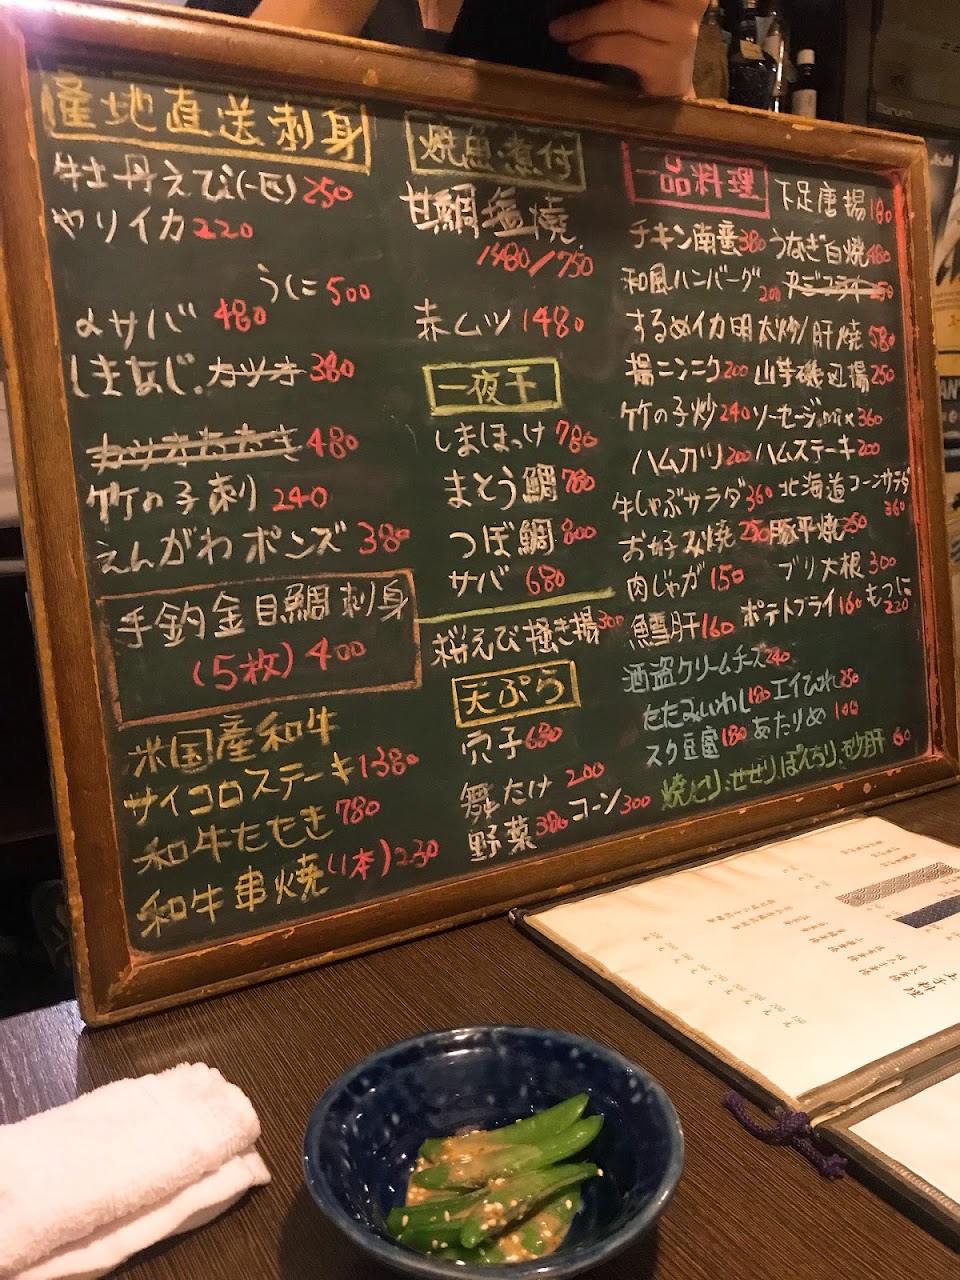 産地直送刺身
牡丹えび(一匹) 250
やりイカ 220
うに 500
〆サバ 480
しまあじ、カツオ 380
カツオたたき 480
竹の子刺 240
えんがわポンズ 380
手釣金目鯛刺身
(5枚) 400
米国産和牛
サイコロステーキ 1380
和牛たたき 780
和牛串焼(1本) 230
焼魚煮付
甘鯛塩焼
1480/750
赤ムツ 1480
一夜干
しまほっけ 780
まとう鯛 780
つぼ鯛 800
サバ 680
桜えび掻き揚 300
天ぷら
穴子 680
舞たけ 200
野菜 380 コーン 300
一品料理
下足唐揚 180
チキン南蛮 380 うなぎ白焼 480
和風ハンバーグ 200
するめイカ明太炒/肝焼 580
揚ニンニク 200 山芋磯辺揚 250
竹の子炒 240 ソーセージmix 360
ハムカツ 200 ハムステーキ 200
牛しゃぶサラダ 360 北海道コーンサラダ 360
お好み焼 250 豚平焼 250
肉じゃが 150 ブリ大根 300
鱈肝 160 ポテトフライ 160 もつに 220
酒盗クリームチーズ 240
たたみいわし 180 エイひれ 250
スク豆富 180 あたりめ 100
焼とり、せせり、ぼんちり、砂肝 60